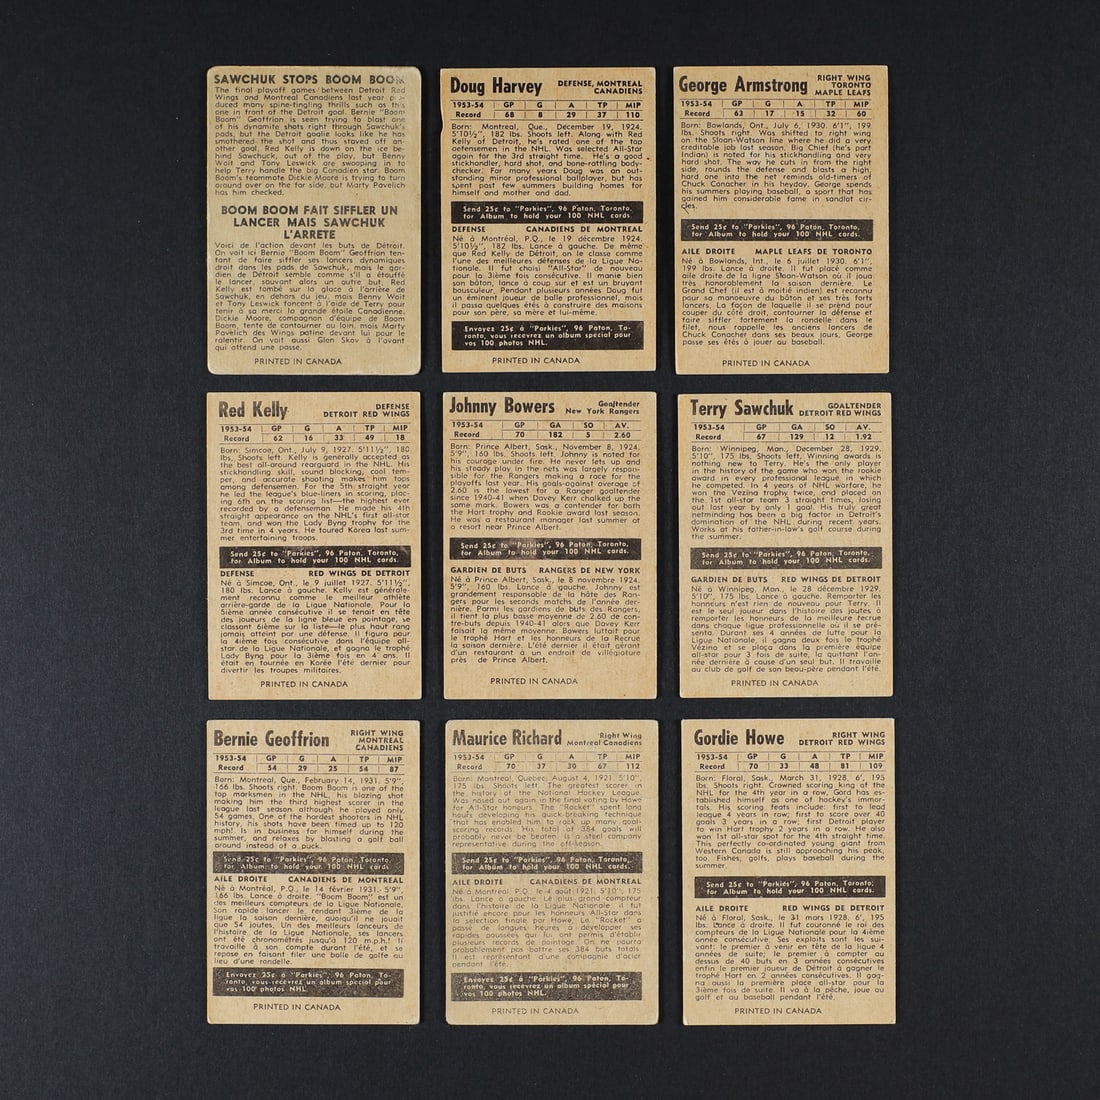 SAWCHUK STOPS BOOM BOOM
The final playoff games between Detroit Red
Wings and Montreal Canadiens last year pro-
duced many spine-tingling thrills such as this
one in front of the Detroit goal. Bernie "Boom
Boom" Geoffrion is seen trying to blast one
of his dynamite shots right through Sawchuk's
pads, but the Detroit goalie looks like he has
smothered the shot and thus staved off an-
other goal. Red Kelly is down on the ice be-
hind Sawchuck, out of the play, but Benny
Woit and Tony Leswick are swooping in to
help Terry handle the big Canadien star. Boom
Boom's teammate Dickie Moore is trying to turn
around over on the far side, but Marty Pavelich
has him checked.
BOOM BOOM FAIT SIFFLER UN
LANCER MAIS SAWCHUK
L'ARRETE
Voici de l'action devant les buts de Détroit.
On voit ici Bernie "Boom Boom" Geoffrion ten-
tant de faire siffler ses lancers dynamiques
droit dans les pads de Sawchuk, mais le gar-
dien de Détroit semble comme s'il a étauffé
le lancer, sauvant alors un autre but. Red
Kelly est tombé sur la glace à l'arrière de
Sawchuk, en dehors du jeu, mais Benny Woit
et Tony Leswick foncent à l'aide de Terry pour
tenir à sa merci la grande étoile Canadienne.
Dickie Moore, compagnon d'équipe de Boom
Boom, tente de contourner au loin, mais Marty
Pavelich des Wings patine devant lui pour le
ralentir. On voit aussi Glen Skov à l'avant
qui attend une passe.
PRINTED IN CANADA
Doug Harvey
DEFENSE, MONTREAL
CANADIENS
1953-54 GP G A TP MIP
Record 68 8 29 37 110
Born: Montreal, Que., December 19, 1924.
5'10½", 182 lbs. Shoots left. Along with Red
Kelly of Detroit, he's rated one of the top
defensemen in the NHL. Was selected All-Star
again for the 3rd straight time. He's a good
stickhandler, hard shot, and bone-rattling body-
checker. For many years Doug was an out-
standing minor professional ballplayer, but has
spent past few summers building homes for
himself and mother and dad.
Send 25¢ to "Parkies", 96 Paton, Toronto,
for Album to hold your 100 NHL cards.
DEFENSE CANADIENS DE MONTREAL
Né à Montréal, P.Q., le 19 décembre 1924.
5'10½", 182 lbs. Lance à gauche. De même
que Red Kelly de Détroit, on le classe comme
l'un des meilleures défenses de la Ligue Na-
tionale. Il fut choisi "All-Star" de nouveau
pour la 3ième fois consécutive. Il manie bien
son bâton, lance à coup sur et est un bruyant
bousculeur. Pendant plusieurs années Doug fut
un éminent joueur de balle professionel, mais
il passa quelques étés à construire des maisons
pour son père, sa mère et lui-même.
Envoyez 25¢ à "Parkies", 96 Paton, To-
ronto, vous recevrez un album spécial pour
vos 100 photos NHL.
PRINTED IN CANADA
George Armstrong
RIGHT WING
TORONTO
MAPLE LEAFS
1953-54 GP G A TP MIP
Record 63 17 15 32 60
Born: Bowlands, Ont., July 6, 1930. 6'1", 199
lbs. Shoots right. Was shifted to right wing
on the Sloan-Watson line where he did a very
creditable job last season. Big Chief (he's part
Indian) is noted for his stickhandling and very
hard shot. The way he cuts in from the right
side, rounds the defense and blasts a high,
hard one into the net reminds old-timers of
Chuck Conacher in his heyday. George spends
his summers playing baseball, a sport that has
gained him considerable fame in sandlot cir-
cles.
Send 25¢ to "Parkies", 96 Paton, Toronto,
for Album to hold your 100 NHL cards.
AILE DROITE MAPLE LEAFS DE TORONTO
Né à Bowlands, Int., le 6 juillet 1930. 6'1",
199 lbs. Lance à droite. Il fut placé comme
aile droite de la ligne Sloan-Watson où il joua
très honorablement la saison dernière. Le
Grand Chef (il est à moitié indien) est reconnu
pour sa manoeuvre du bâton et ses très forts
lancers. La façon de laquelle il se prend pour
couper du côté droit, contourner la défense et
faire siffler fortement la rondelle dans le
filet, nous rappelle les anciens lancers de
Chuck Conacher dans ses beaux jours. George
passe ses étés à jouer au baseball.
PRINTED IN CANADA
Red Kelly
DEFENSE
DETROIT RED WINGS
1953-54 GP G A TP MIP
Record 62 16 33 49 18
Born: Simcoe, Ont., July 9, 1927. 5'11½", 180
lbs. Shoots left. Kelly is generally accepted as
the best all-around rearguard in the NHL. His
stickhandling skill, sound blocking, cool tem-
per, and accurate shooting makes him tops
among defensemen. For the 5th straight year
he led the league's blue-liners in scoring, plac-
ing 6th on the scoring list—the highest ever
recorded by a defenseman. He made his 4th
straight appearance on the NHL's first all-star
team, and won the Lady Byng trophy for the
3rd time in 4 years. He toured Korea last sum-
mer entertaining troops.
Send 25¢ to "Parkies", 96 Paton, Toronto,
for Album to hold your 100 NHL cards.
DEFENSE RED WINGS DE DETROIT
Né à Simcoe, Ont., le 9 juillet 1927. 5'11½",
180 lbs. Lance à gauche. Kelly est générale-
ment reconnu comme le meilleur athlète
arrière-garde de la Ligue Nationale. Pour la
5ième année consécutive il se tenait en tête
des joueurs de la ligne bleue en pointage, se
classant 6ième sur la liste—le plus haut rang
jamais atteint par une défense. Il figura pour
la 4ième fois consécutive dans l'équipe all-
star de la Ligue Nationale, et gagna le trophé
Lady Byng pour la 3ième fois en 4 ans. Il
était en tournée en Korée l'été dernier pour
divertir les troupes militaires.
PRINTED IN CANADA
Johnny Bowers
Goaltender
New York Rangers
1953-54 GP GA SO AV.
Record 70 182 5 2.60
Born: Prince Albert, Sask., November 8, 1924,
5'9", 160 lbs. Shoots left. Johnny is noted for
his courage under fire. He never lets up and
his steady play in the nets was largely respon-
sible for the Rangers making a race for the
playoffs last year. His goals-against average of
2.60 is the lowest for a Ranger goaltender
since 1940-41 when Davey Kerr chalked up the
same mark. Bowers was a contender for both
the Hart trophy and Rookie award last season.
He was a restaurant manager last summer at
a resort near Prince Albert.
Send 25¢ to "Parkies", 96 Paton, Toronto,
for Album to hold your 100 NHL cards.
GARDIEN DE BUTS RANGERS DE NEW YORK
Né à Prince Albert, Sask., le 8 novembre 1924.
5'9", 160 lbs. Lance à gauche. Johnny est
grandement responsable de la hâte des Ran-
gers pour les seconds matchs de l'année der-
nière. Parmi les gardiens de buts des Rangers,
il tient la plus basse moyenne de 2.60 de con-
tre-buts depuis 1940-41 alors que Davey Kerr
faisait la même moyenne. Bowers luttait pour
le trophé Hart et les honneurs de la Recrue
la saison dernière. L'été dernier il était gérant
d'un restaurant à un endroit de villégiature
près de Prince Albert.
PRINTED IN CANADA
Terry Sawchuk
GOALTENDER
DETROIT RED WINGS
1953-54 GP GA SO AV.
Record 67 129 12 1.92
Born: Winnipeg, Man., December 28, 1929.
5'10", 175 lbs. Shoots left. Winning awards is
nothing new to Terry. He's the only player
in the history of the game who won the rookie
award in every professional league in which
he competed. In 4 years of NHL warfare, he
won the Vezina trophy twice, and placed on
the 1st all-star team 3 straight times, losing
out last year by only 1 goal. His truly great
netminding has been a big factor in Detroit's
domination of the NHL during recent years.
Works at his father-in-law's golf course during
the summer.
Send 25¢ to "Parkies", 96 Paton, Toronto,
for Album to hold your 100 NHL cards.
GARDIEN DE BUTS RED WINGS DE DETROIT
Né à Winnipeg, Man., le 28 décembre 1929.
5'10", 175 lbs. Lance à gauche. Remporter les
honneurs n'est rien de nouveau pour Terry. Il
est le seul joueur dans l'histoire des joutes à
remporter les honneurs de la meilleure recrue
dans chaque ligue professionelle où il se pré-
senta. Durant ses 4 années de lutte pour la
Ligue Nationale, il gagna deux fois le trophé
Vézina et se plaça dans la première équipe
all-star pour 3 fois de suite, la quittant l'an-
née dernière à cause d'un seul but. Il travaille
au club de golf de son beau-père pendant l'été.
PRINTED IN CANADA
Bernie Geoffrion
RIGHT WING
MONTREAL
CANADIENS
1953-54 GP G A TP MIP
Record 54 29 25 54 87
Born: Montreal, Que., February 14, 1931. 5'9",
166 lbs. Shoots right. Boom Boom is one of the
top marksmen in the NHL, his blazing shot
making him the third highest scorer in the
league last season although he played only
54 games. One of the hardest shooters in NHL
history, his shots have been timed up to 120
mph! Is in business for himself during the
summer, and relaxes by blasting a golf ball
around instead of a puck.
Send 25¢ to "Parkies", 96 Paton, Toronto,
for Album to hold your 100 NHL cards.
AILE DROITE CANADIENS DE MONTREAL
Né à Montréal, P.Q., le 14 février 1931. 5'9",
166 lbs. Lance à droite. "Boom Boom" est un
des meilleurs compteurs de la Ligue Nationale.
Son rapide lancer le rendant 3ième de la
ligue la saison dernière, quoiqu'il ne jouait
que 54 joutes. Un des meilleurs lanceurs de
l'histoire de la Ligue Nationale, ses lancers
ont été chronométrés jusqu'à 120 m.p.h.! Il
travaille à son compte durant l'été, et se
repose en faisant filer une balle de golfe au
lieu d'une rondelle.
Envoyez 25¢ à "Parkies", 96 Paton, To-
ronto, vous recevrez un album spécial pour
vos 100 photos NHL.
PRINTED IN CANADA
Maurice Richard
Right Wing
Montreal Canadiens
1953-54 GP G A TP MIP
Record 70 37 30 67 112
Born: Montreal, Quebec, August 4, 1921. 5'10",
175 lbs. Shoots left. The greatest scorer in
the history of the National Hockey League.
Was nosed out again in the final voting by Howe
for All-Star honours. The "Rocket" spent long
hours developing his quick-breaking technique
that has enabled him to rack up many goal-
scoring records. His total of 384 goals will
probably never be beaten. Is a steel company
representative during the off-season.
Send 25¢ to "Parkies", 96 Paton, Toronto,
for Album to hold your 100 NHL cards.
AILE DROITE CANADIENS DE MONTREAL
Né à Montréal, P.Q. le 4 août 1921. 5'10", 175
lbs. Lance à gauche. Le plus grand compteur
dans l'histoire de la Ligue Nationale. Il fut
justifié encore pour les honneurs All-Star dans
la sélection finale par Howe. Le "Rocket" a
passé de longues heures à développer ses
rapides poussées qui lui ont permis d'établir
plusieurs records de pointage. On ne pourra
probablement pas battre ses 384 buts totals.
Il est représentant d'une compagnie d'acier
pendant l'été.
Envoyez 25¢ à "Parkies", 96 Paton, To-
ronto, vous recevrez un album spécial pour
vos 100 photos NHL.
PRINTED IN CANADA
Gordie Howe
RIGHT WING
DETROIT RED WINGS
1953-54 GP G A TP MIP
Record 70 33 48 81 109
Born: Floral, Sask., March 31, 1928, 6', 195
lbs. Shoots right. Crowned scoring king of the
NHL for the 4th year in a row, Gord has es-
tablished himself as one of hockey's immor-
tals. His scoring feats include: first to lead
league 4 years in row; first to score over 40
goals 3 years in a row; first Detroit player
to win Hart trophy 2 years in a row. He also
won 1st all-star spot for the 4th straight time.
This perfectly co-ordinated young giant from
Western Canada is still approaching his peak,
too. Fishes, golfs, plays baseball during the
summer.
Send 25¢ to "Parkies", 96 Paton, Toronto,
for Album to hold your 100 NHL cards.
AILE DROITE RED WINGS DE DETROIT
Né à Floral, Sask., le 31 mars 1928, 6', 195
lbs. Lance à droite. Il fut couronné le roi des
compteurs de la Ligue Nationale pour la 4ième
année consécutive. Ses exploits sont les sui-
vant: le premier à venir en tête de la ligue 4
années de suite; le premier à compter au
dessus de 40 buts en 3 années consécutives
enfin le premier joueur de Détroit à gagner le
trophé Hart en 2 années consécutives. Il gag-
na aussi la première place all-star pour la
3ième fois de suite. Il va à la pêche, joue au
golf et au baseball pendant l'été.
PRINTED IN CANADA